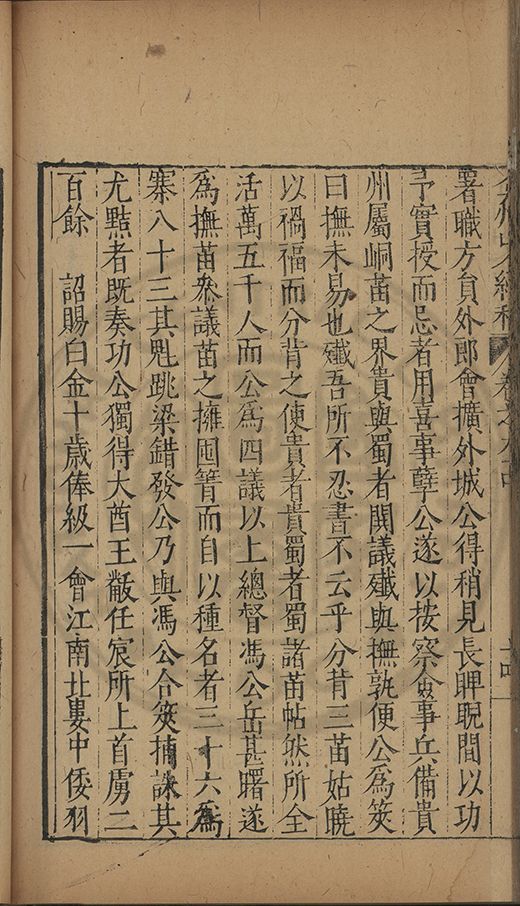 弇州山人續稿 卷之九十 十四
署職方員外郎會擴外城公得稍見長睥睨間以功
予實授而忌者用喜事孽公遂以按察僉事兵備貴
州屬峒苗之界貴與蜀者閧議殲與撫孰便公為筴
曰撫未易也殲吾所不忍書不云乎分背三苗姑曉
以禍福而分背之使貴者貴蜀者蜀諸苗帖然所全
活萬五千人而公為四議以上總督馮公岳甚曙遂
為撫苗叅議苗之擁囤箐而自以種名者三十六為
寨八十三其魁跳梁錯發公乃與馮公合筴捕誅其
尤黠者既奏功公獨得大酋王黻任宸所上首虜二
百餘 詔賜白金十歲俸級一會江南北婁中倭羽